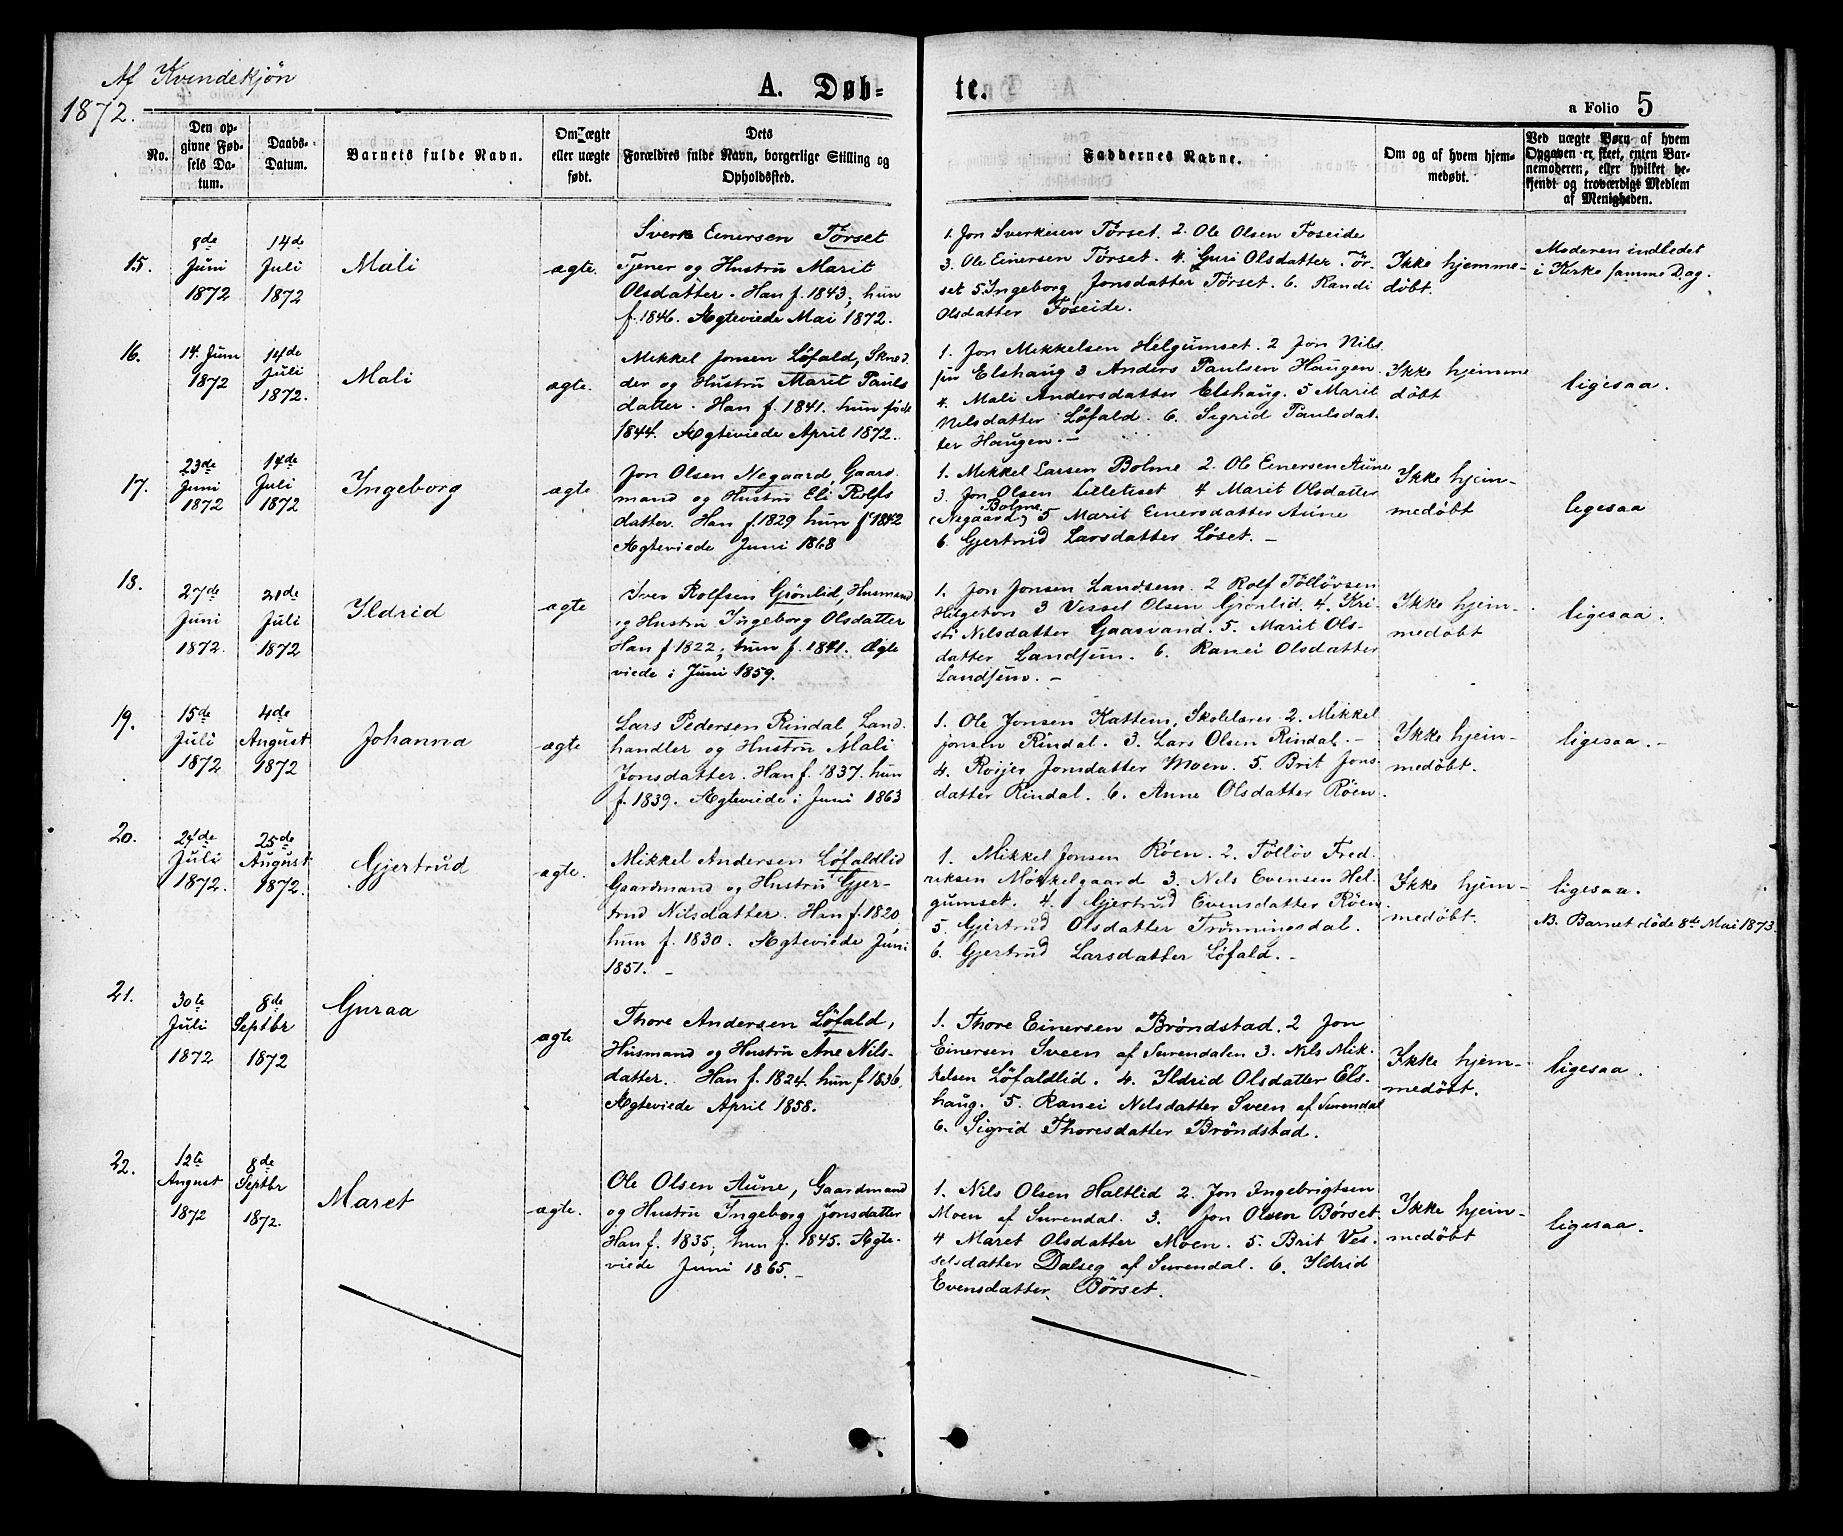 Af Kvindekjøn
1872.
A. Døb-
te.
a Folio 5
No.
Den op-
givne Fød-
sels Da-
tum.
Daabs-
Datum.
Barnets fulde Navn.
Om ægte
eller uægte
født.
Dets
Forældres fulde Navn, borgerlige Stilling og
Opholdssted.
Faddernes Navne.
Om og af hvem hjem-
medøbt.
Ved uægte Børn af hvem
Opgaven er skeet, enten Bar-
nemoderen, eller hvilket be-
kjendt og troværdigt Medlem
af Menigheden.
15.
8de
Juni
1872
14de
Juli
1872
Mali
ægte.
Sverk Einersen Torset
Tjener og Hustru Marit
Olsdatter. Han f. 1843, hun
f. 1846. Ægteviede Mai 1872.
1. Jon Sverkesen Tørset. 2. Ole Olsen Foseide
3. Ole Einersen Tørset. 4. Guri Olsdatter Tør-
set 5. Ingeborg Jonsdatter Tørset. 6. Randi
Olsdatter Foseide.
Ikke hjemme-
døbt.
Moderen indledet
i Kirke samme Dag.
16.
14. Juni
1872
14de
Juli
1872.
Mali
ægte.
Mikkel Jonsen Løfald, Skræd
der og Hustru Marit Pauls
datter. Han f. 1841. hun født
1844. Ægteviede April 1872.
1. Jon Mikkelsen Helgumset. 2 Jon Nils
sen Elshaug 3 Anders Paulsen Haugen
4. Mali Andersdatter Elshaug. 5 Marit
Nilsdatter Løfald. 6. Sigrid Paulsdat-
ter Haugen. -
Ikke hjemme
døbt
ligesaa.
17.
23de
Juni
1872
14de
Juli
1872
Ingeborg
ægte
Jon Olsen Negaard, Gaard
mand og Hustru Eli Rolfs
datter. Han f. 1829 hun f 1842
Ægteviede Juni 1868
1. Mikkel Larsen Bolme 2. Ole Einersen Aune
3. Jon Olsen Lilletiset 4 Marit Olsdatter
Bolme
(Negaard) 5 Marit Einersdatter Aune
6. Gjertrud Larsdatter Løset. -
Ikke hjem-
medøbt
ligesaa
18.
27de
Juni
1872.
21de
Juli
1872
Ildrid
ægte
Iver Rolfsen Grønlid, Husmand
og Hustru Ingeborg Olsdatter
Han f 1822, hun f. 1841. Ægte
viede i Juni 1859.
1. Jon Jonsen Landsem. 2 Rolf Tølløvsen
Helgeton 3 Vessel Olsen Grønlid. 4. Kri-
sti Nilsdatter Gaasvand. 5. Marit Ols-
datter Landsem. 6. Ranei Olsdatter
Landsem. -
Ikke hjem-
medøbt
ligesaa.
19.
15de
Juli
1872
4de
August
1872
Johanna
ægte
Lars Pedersen Rindal, Land
handler og Hustru Mali
Jonsdatter. Han f. 1837. hun
f. 1839. Ægteviede i Juni 1863
1. Ole Jonsen Kattem, Skolelærer 2. Mikkel
Jonsen Rindal. 3. Lars Olsen Rindal. -
4. Roijer Jonsdatter Moen. 5. Brit Jons-
datter Rindal. 6. Anne Olsdatter Røen.
Ikke hjem-
medøbt.
ligesaa. -
20.
24de
Juli
1872.
25de
August
1872.
Gjertrud
ægte.
Mikkel Andersen Løfaldlid
Gaardmand og Hustru Gjer-
trud Nilsdatter. Han f. 1820,
hun f. 1830. Ægteviede Juni
1851. -
1. Mikkel Jonsen Røen. 2. Tølløv Fred-
riksen Møkkelgaard 3. Nils Evensen Hel-
gumset. 4. Gjertrud Evensdatter Røen
5. Gjertrud Olsdatter Trønningsdal.
6. Gjertrud Larsdatter Løfald. -
Ikke hjem-
medøbt.
ligesaa.
NB. Barnet døde 8de Mai 1873.
21.
30te
Juli
1872
8de
Septbr
1872
Guraa
ægte
Thore Andersen Løfald,
Husmand og Hustru Ane Nils-
datter. Han f. 1824. hun f 1836.
Ægteviede April 1858.
1. Thore Einersen Brøndstad. 2 Jon
Einersen Sveen af Surendalen 3. Nils Mik-
kelsen Løfaldlid. 4. Ildrid Olsdatter Els-
haug. 5. Ranei Nilsdatter Sveen af Surendal
6. Sigrid Thoresdatter Brøndstad.
Ikke hjem-
medøbt.
ligesaa.
22.
12te
August
1872
8de
Septbr
1872.
Maret
ægte.
Ole Olsen Aune, Gaardmand
og Hustru Ingeborg Jonsdatter
Han f. 1835, hun f. 1845. Ægte-
viede Juni 1865. -
1. Nils Olsen Haltlid 2. Jon Ingebrigtsen
Moen af Surendal. 3. Jon Olsen Børset
4 Maret Olsdatter Moen. 5. Brit Ves-
selsdatter Dalseg af Surendal. 6. Ildrid
Evensdatter Børset.
Ikke hjem-
medøbt
ligesaa.